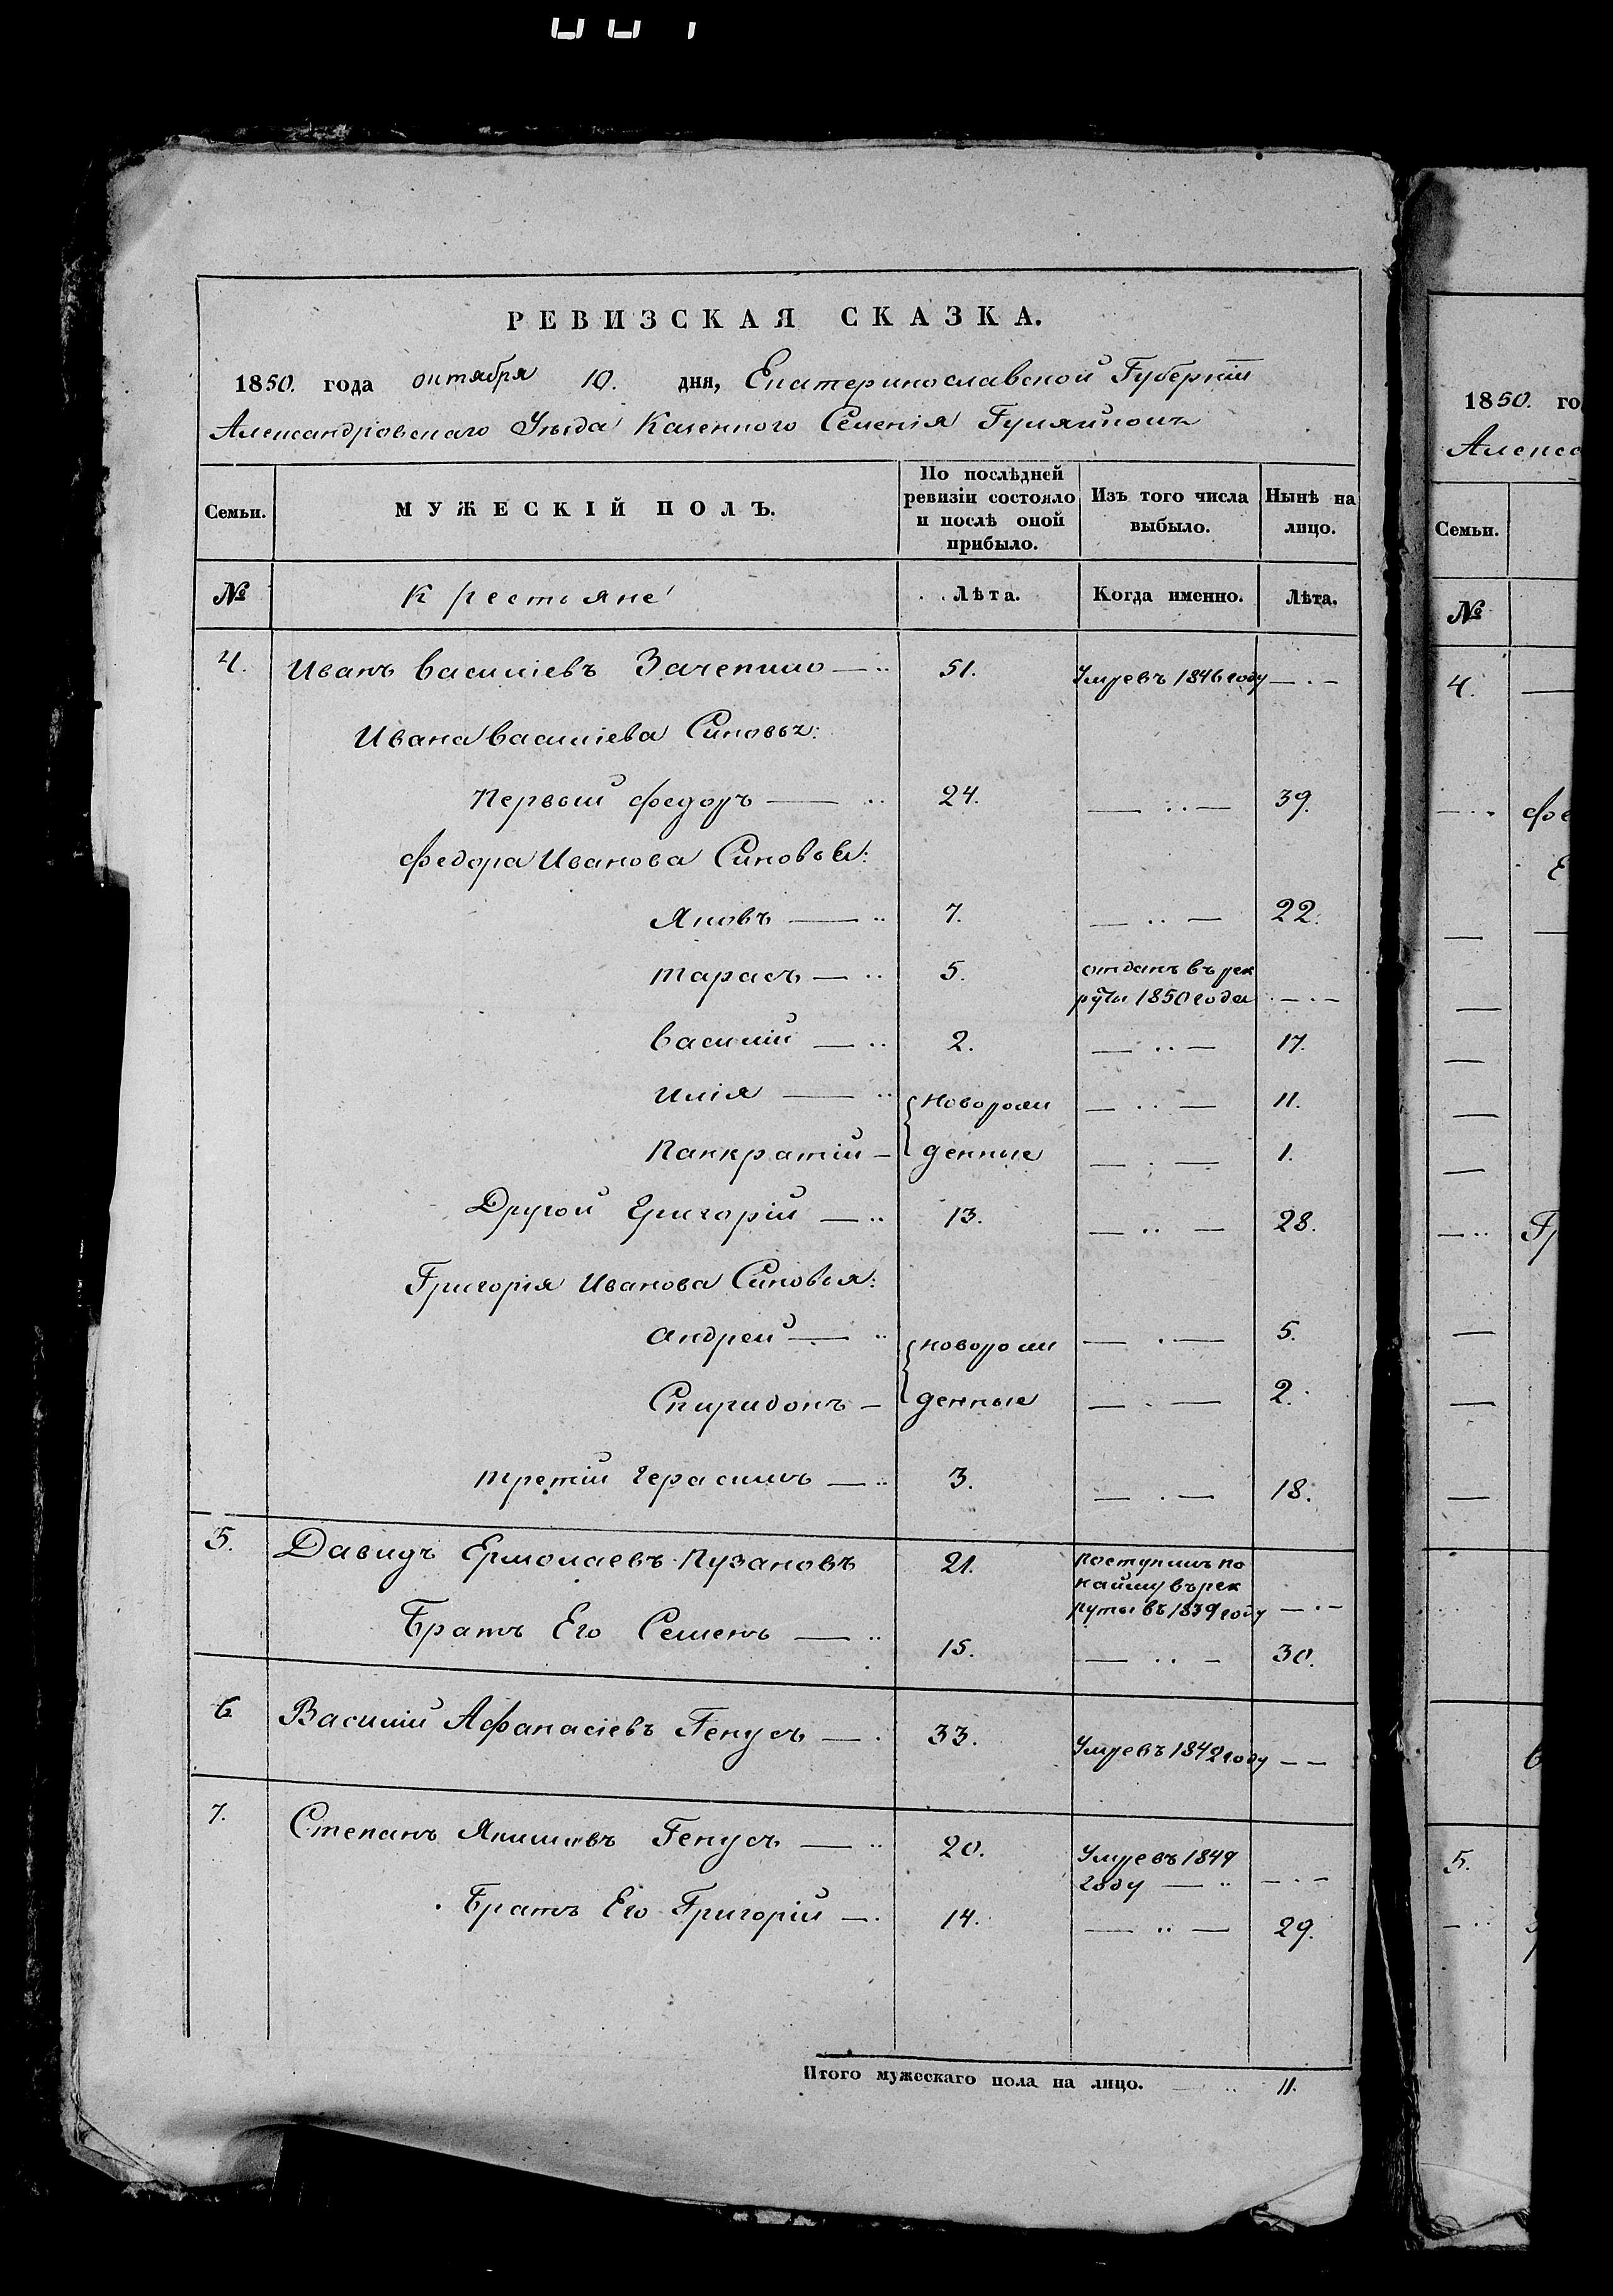 РЕВИЗСКАЯ СКАЗКА.
1850. года октября 10. дня, Екатеринославской Губерніи
Александровскаго Уезда Казенного Селенія Гуляйполь
Семьи. МУЖЕСКІЙ ПОЛЪ. По послѣдней ревизіи состояло и послѣ оной прибыло. Изъ того числа выбыло. Нынѣ на лицо.
№ Крестьяне Лѣта. Когда именно. Лѣта.
4. Иванъ Василіевъ Зачепило 51. Умревъ 1846 году
Ивана Василіева Синовья:
Первый Федоръ 24. 39.
Федора Иванова Синовья:
Яковъ 7. 22.
Тарасъ 5. отданъ в рек
руты 1850 года
Василий 2. 17.
Илія новорож 11.
Панкратій денные 1.
Другой Григорій 13. 28.
Григорія Иванова Синовья:
Андрей новорож 5.
Спиридонъ денные 2.
третій Герасимъ 3. 18.
5. Давидъ Ермолаевъ Пузановъ 21. поступилъ по
найму въ рек
руты въ 1839 году
Братъ Его Семенъ 15. 30.
6. Василий Афанасіевъ Генусъ 33. Умревъ 1842 году
7. Степанъ Якимовъ Генусъ 20. Умревъ 1849
году
Братъ Его Григорій 14. 29.
Итого мужескаго пола на лицо. 11.
1850. го
Алекс
Семьи.
№
4.
Фе
Гр
5.